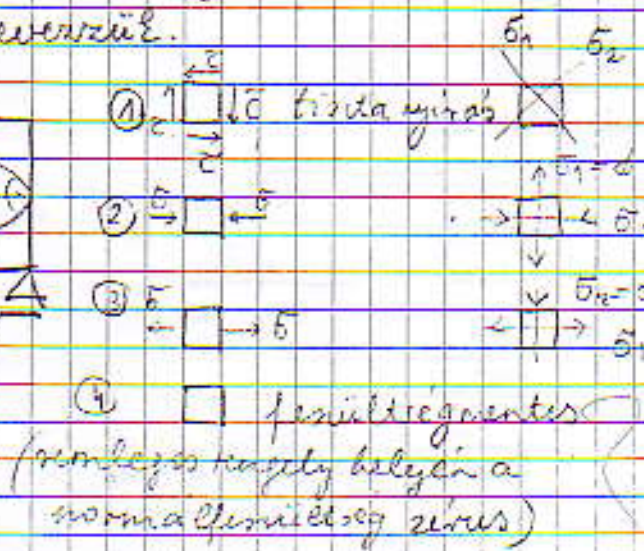 nevezzük.
σ1 σ2
① τ τ τ τ tiszta nyírás
σ1 =
② σ σ
③ σ σ
④ feszültségmentes
(semleges tengely helyén a
normálfeszültség zérus)